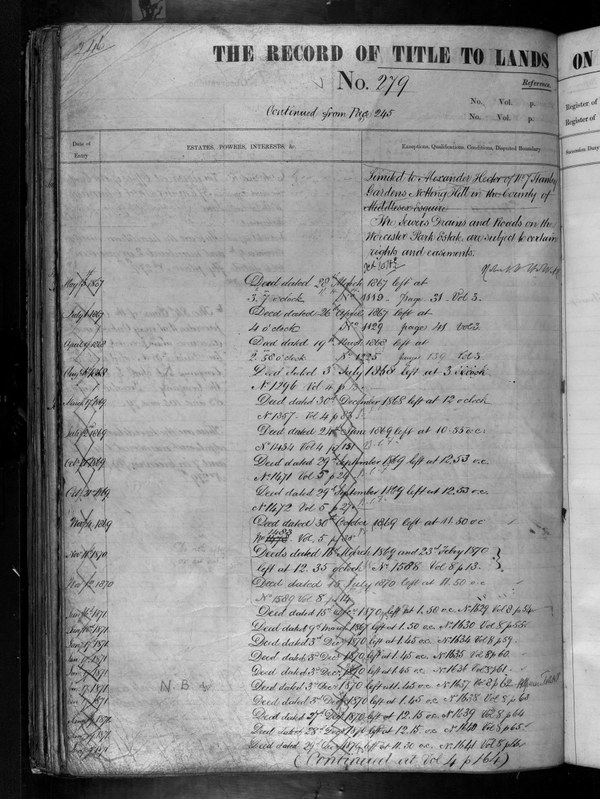 246
THE RECORD OF TITLE TO LANDS
ON
No. 279
Reference.
No. Vol. p.
No. Vol. p.
Continued from Page 245
Register of
Register of
Date of Entry
ESTATES, POWERS, INTERESTS, &c.
Exceptions, Qualifications, Conditions, Disputed Boundary
Succession Duty
Limited to Alexander Hector of No 7 Stanley
Gardens Notting Hill in the County of
Middlesex Esquire
The Sewers Drains and Roads on the
Worcester Park Estate are subject to certain
rights and easements.
1867 Deed dated 28th March 1867 left at
3.7 o'clock No 1119 Page 31 Vol 3.
1867 Deed dated 26th April 1867 left at
4 o'clock No 1129 page 41 Vol 3
April 1868 Deed dated 19th March 1868 left at
2.30 o'clock No 1225 page 139 Vol 3
1868 Deed dated 3rd July 1868 left at 3 o'clock
No 1296 Vol 4 p
March 1869 Deed dated 30th December 1868 left at 12 o'clock
No 1357 Vol 4 p
1869 Deed dated 24th 1869 left at 10.55 o.c.
No 1434 Vol 4 p 151
Oct 1869 Deed dated 29th September 1869 left at 12.53 o.c.
No 1471 Vol 5 p 26
Oct 1869 Deed dated 29th September 1869 left at 12.53 o.c.
No 1472 Vol. 5 p 27
Nov 4 1869 Deed dated 30th October 1869 left at 11.50 o.c
No 1483 Vol. 5 p 38
Nov 1870 Deeds dated 18th March 1869 and 23rd Feby 1870
left at 12.35 o'clock No 1588 Vol 8 p 13.
Nov 12 1870 Deed dated 15 July 1870 left at 11.50 o.c
No 1589 Vol 8 p 14
1871 Deed dated 15th 1870 left at 1.50 o.c. No 1629 Vol 8 p 54
1871 Deed dated 9th 1867 left at 1.50 o.c. No 1630 Vol 8 p 55
1871 Deed dated 3rd Dec 1870 left at 1.45 o.c. No 1634 Vol 8 p 59
1871 Deed dated 3rd Dec 1870 left at 1.45 o.c. No 1635 Vol 8 p 60
1871 Deed dated 3rd Dec 1870 left at 1.45 o.c. No 1636 Vol 8 p 61
N B
1871 Deed dated 3rd Dec 1870 left at 1.45 o.c. No 1637 Vol 8 p 62
1871 Deed dated 5th Dec 1870 left at 1.45 o.c. No 1638 Vol 8 p 63
1871 Deed dated 27th Dec 1870 left at 12.15 o.c. No 1639 Vol 8 p 64
1871 Deed dated 28th Dec 1870 left at 12.15 o.c. No 1640 Vol 8 p 65
1871 Deed dated 29 Dec 1870 left at 11.30 o.c. No 1641 Vol 8 p 66
(Continued at Vol 4 p 164)